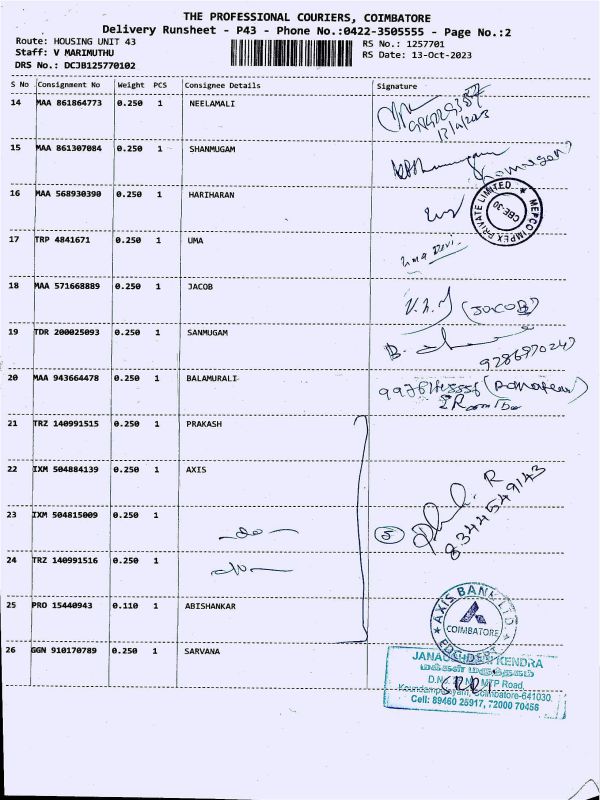 THE PROFESSIONAL COURIERS, COIMBATORE
Delivery Runsheet - P43 - Phone No.:0422-3505555 - Page No.:2
Route: HOUSING UNIT 43
Staff: V MARIMUTHU
DRS No.: DCJB125770102
RS No.: 1257701
RS Date: 13-Oct-2023
S No Consignment No Weight PCS Consignee Details Signature
14 MAA 861864773 0.250 1 NEELAMALI
15 MAA 861307084 0.250 1 SHANMUGAM
16 MAA 568930390 0.250 1 HARIHARAN
MEPCO IMPEX PRIVATE LIMITED
CBE-30
17 TRP 4841671 0.250 1 UMA
Uma Devi
18 MAA 571668889 0.250 1 JACOB
(JACOB)
19 TDR 200025093 0.250 1 SANMUGAM
20 MAA 943664478 0.250 1 BALAMURALI
21 TRZ 140991515 0.250 1 PRAKASH
22 IXM 504884139 0.250 1 AXIS
23 IXM 504815009 0.250 1 -do-
5
8344549143
24 TRZ 140991516 0.250 1 -do-
25 PRO 15440943 0.110 1 ABISHANKAR
AXIS BANK LTD.
COIMBATORE
26 GGN 910170789 0.250 1 SARVANA
KENDRA
மக்கள் மருந்தகம்
MTP Road,
Coimbatore-641030.
Cell: 89460 25917, 72000 70456